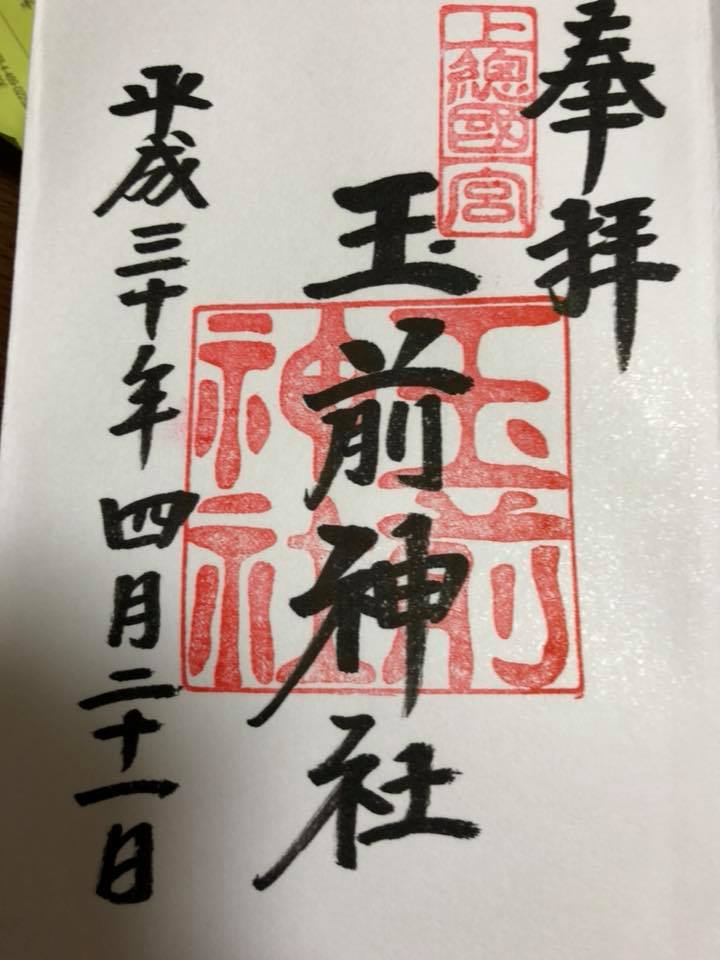 奉拝
上總國一宮
玉前神社
玉前神社
平成三十年四月二十一日